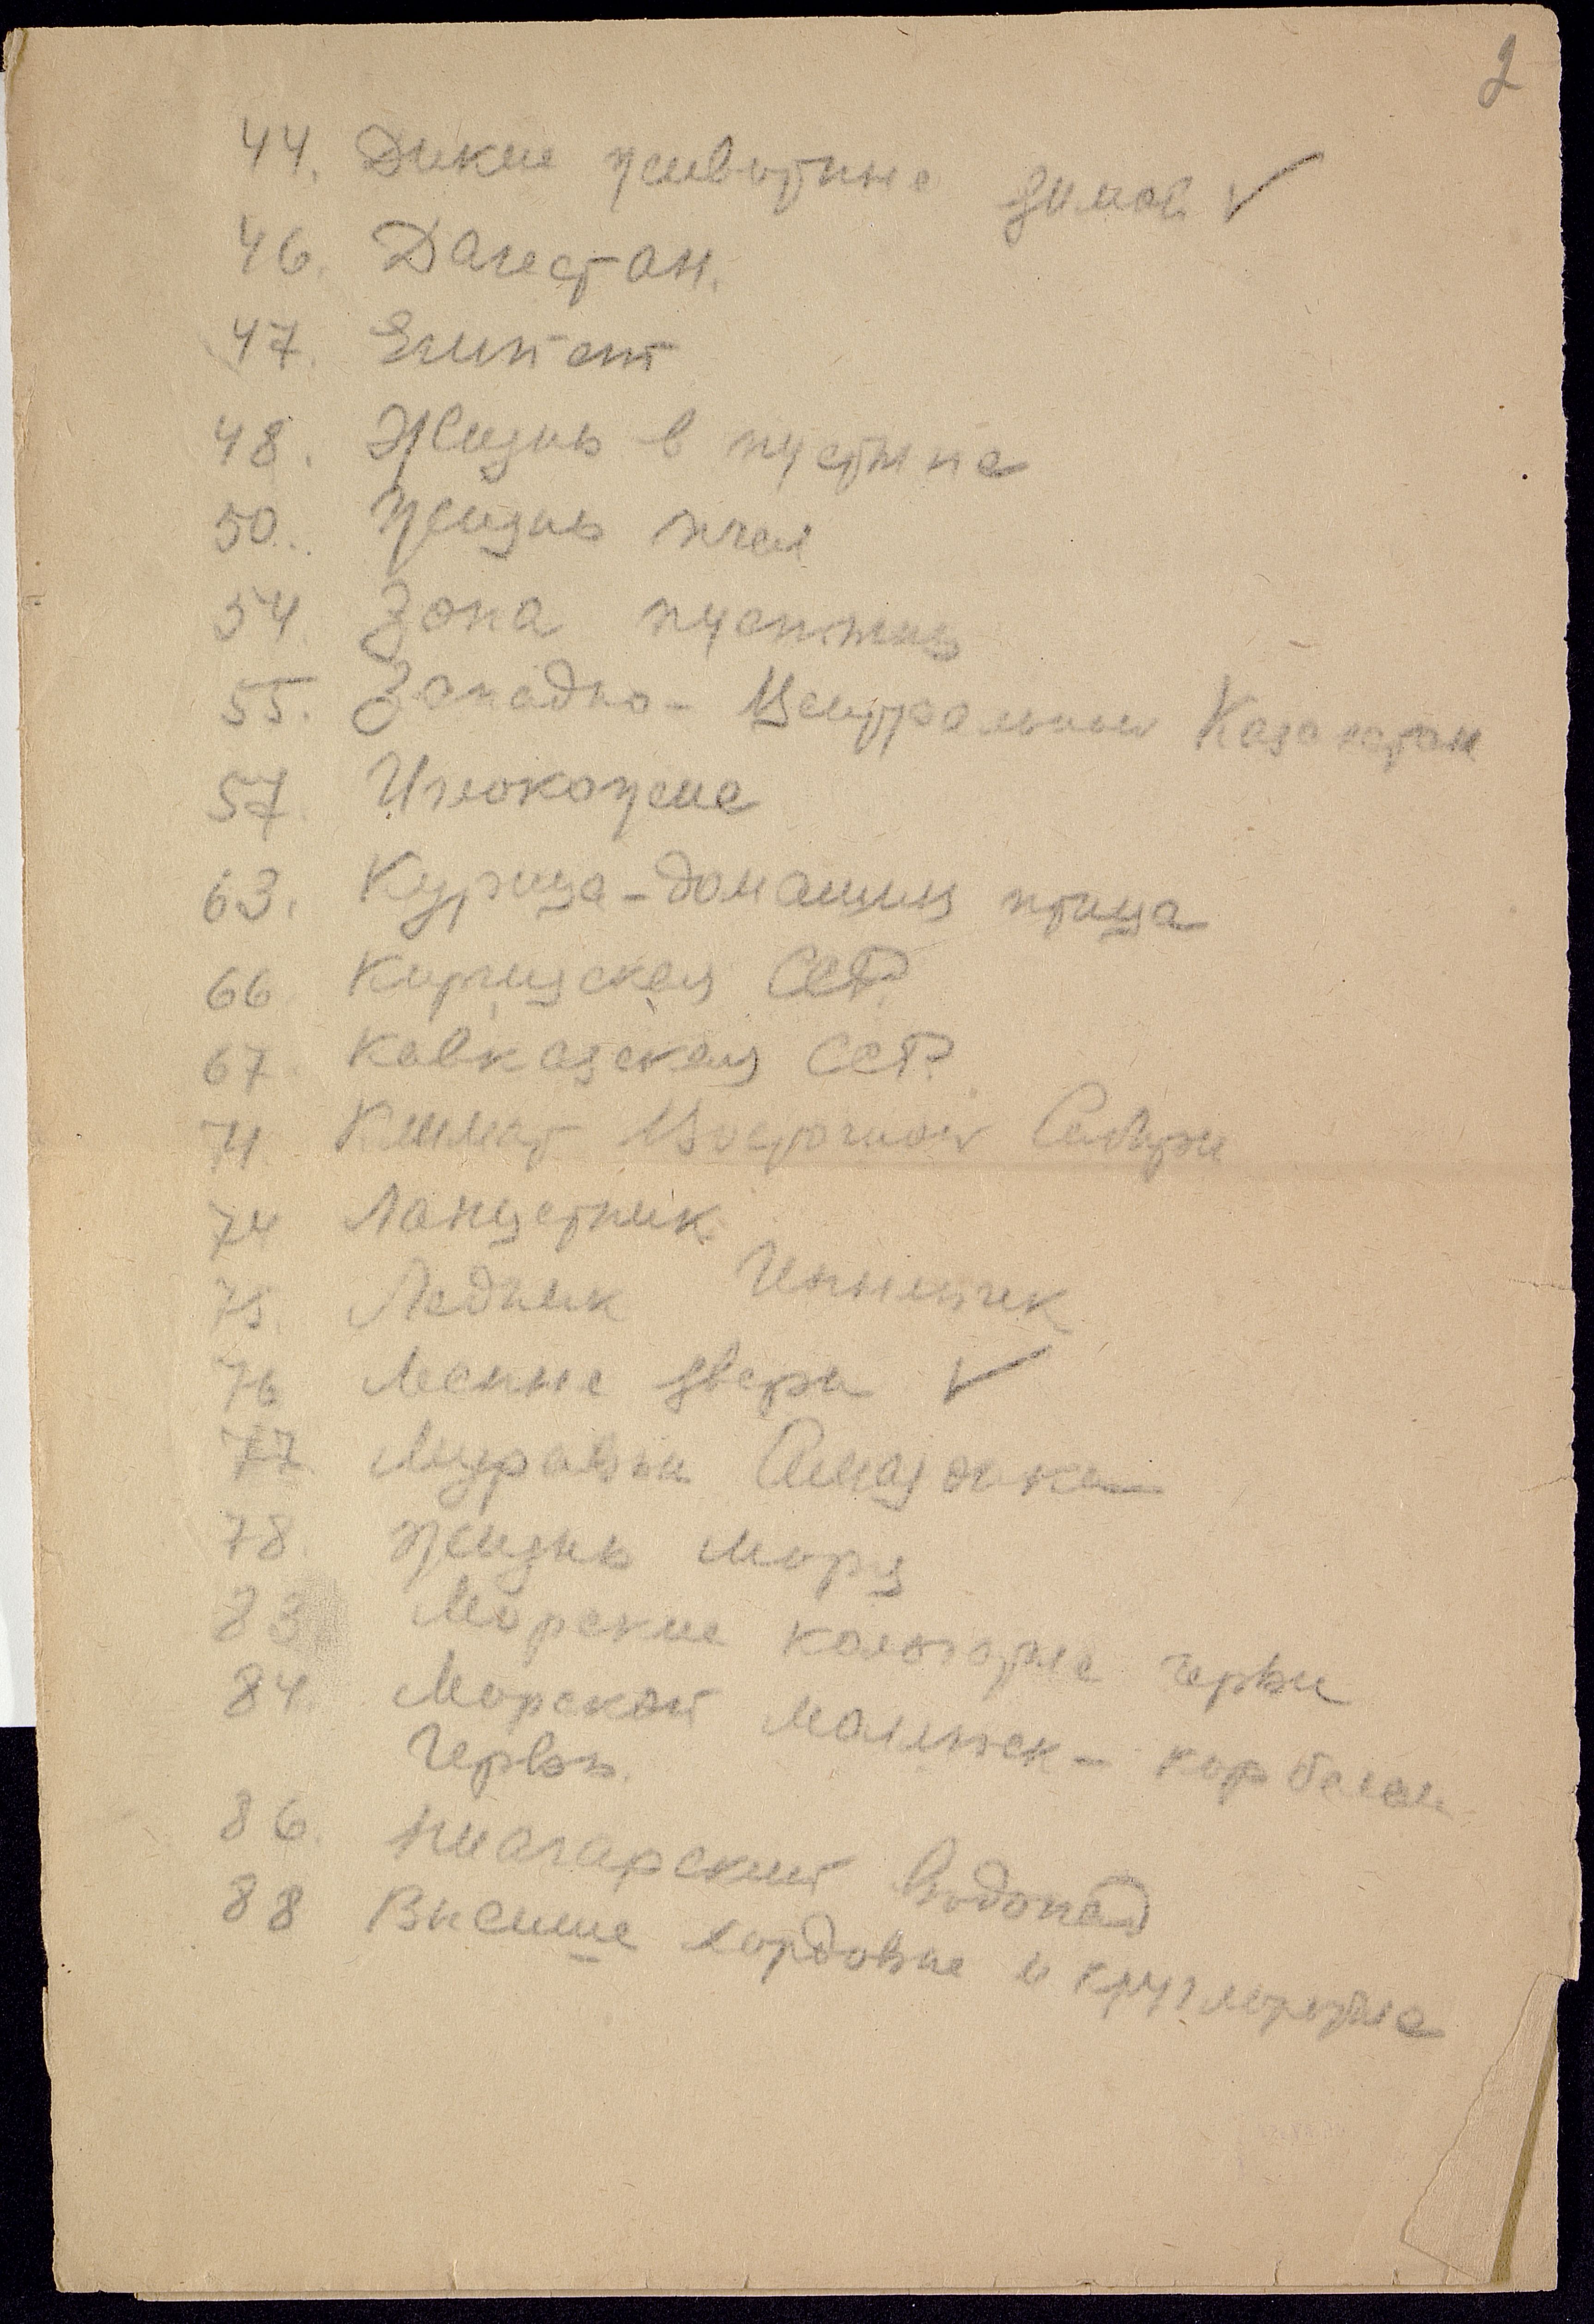 2
44. Дикие животные зимой ✓
46. Дагестан.
47. Египет
48. Жизнь в пустыне
50. Жизнь пчел
54. Зона пустынь
55. Западно-Центральный Казахстан
57. Иглокожие
63. Курица-домашняя птица
66 Киргизская ССР.
67. Кавказская ССР.
71. Климат Восточной Сибири
74 Ланцетник.
75. Ледник
76 Лесные звери ✓
77 Муравьи Амазонки
78. Жизнь моря
83. Морские кольчатые черви
84. Морской моллюск - корабельн
Червь.
86. Ниагарский водопад
88 Высшие хордовые и круглоротые